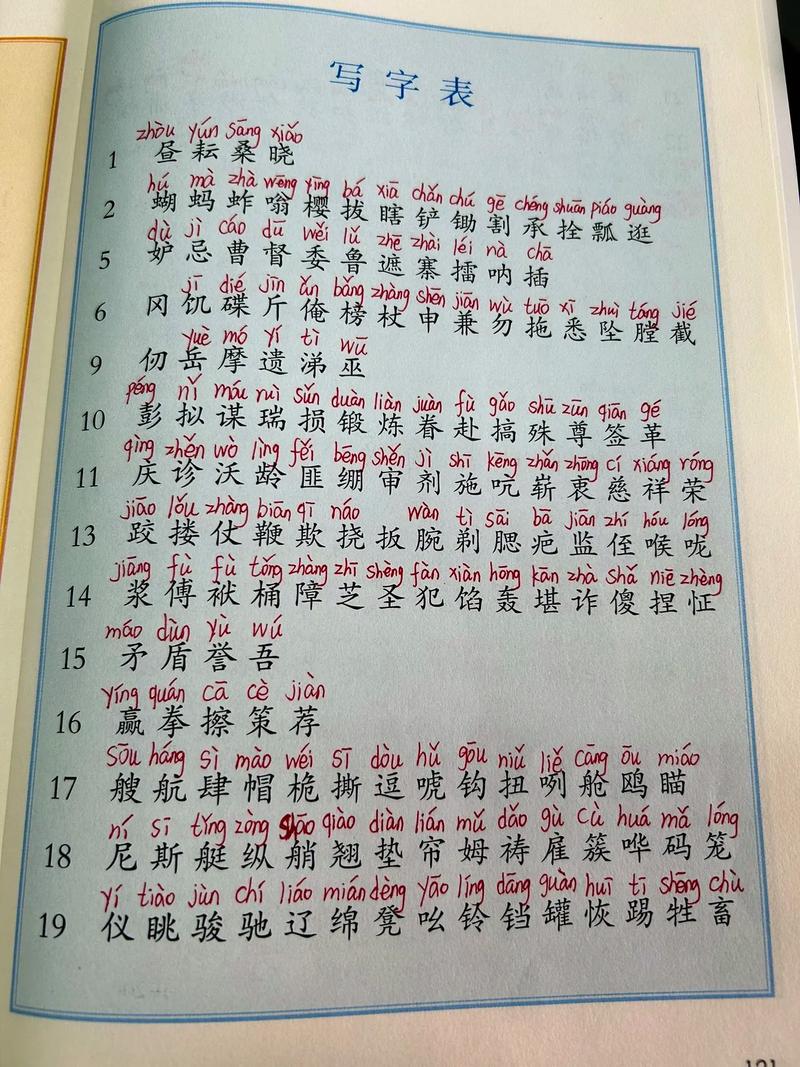 写字表
zhòu yún sāng xiǎo
1 昼 耘 桑 晓
hú mà zhà wēng yīng bá xiā chǎn chú gē chéng shuān piáo guàng
2 蝴 蚂 蚱 嗡 樱 拔 瞎 铲 锄 割 承 拴 瓢 逛
dù jì cáo dū wěi lǔ zhē zhài léi nà chā
5 妒 忌 曹 督 委 鲁 遮 寨 擂 呐 插
jī dié jīn ǎn bǎng zhàng shēn jiān wù tuō xī zhuì táng jié
6 冈 饥 碟 斤 俺 榜 杖 申 兼 勿 拖 悉 坠 膛 截
yuè mó yí tì wū
9 仞 岳 摩 遗 涕 巫
péng nǐ móu ruì sǔn duàn liàn juàn fù gǎo shū zūn qiān gé
10 彭 拟 谋 瑞 损 锻 炼 眷 赴 搞 殊 尊 签 革
qìng zhěn wò líng fěi bēng shěn jì shī kēng zhǎn zhōng cí xiáng róng
11 庆 诊 沃 龄 匪 绷 审 剂 施 吭 崭 衷 慈 祥 荣
jiāo lǒu zhàng biān qī náo wàn tì sāi bā jiān zhí hóu lóng
13 跤 搂 仗 鞭 欺 挠 扳 腕 剃 腮 疤 监 侄 喉 咙
jiāng fù fù tǒng zhàng zhī shèng fàn xiàn hōng kān zhà shǎ niē zhèng
14 浆 傅 袱 桶 障 芝 圣 犯 馅 轰 堪 诈 傻 捏 怔
máo dùn yù wú
15 矛 盾 誉 吾
yíng quán cā cè jiàn
16 赢 拳 擦 策 荐
sōu háng sì mào wéi sī dòu hǔ gōu niǔ liě cāng ōu miáo
17 艘 航 肆 帽 桅 撕 逗 唬 钩 扭 咧 舱 鸥 瞄
ní sī tǐng zòng shāo qiào diàn lián mǔ dǎo gù cù huá mǎ lóng
18 尼 斯 艇 纵 艄 翘 垫 帘 姆 祷 雇 簇 哗 码 笼
yí tiào jùn chí liáo mián dèng yāo líng dāng guàn huī tī shēng chù
19 仪 眺 骏 驰 辽 绵 凳 吆 铃 铛 罐 恢 踢 牲 畜